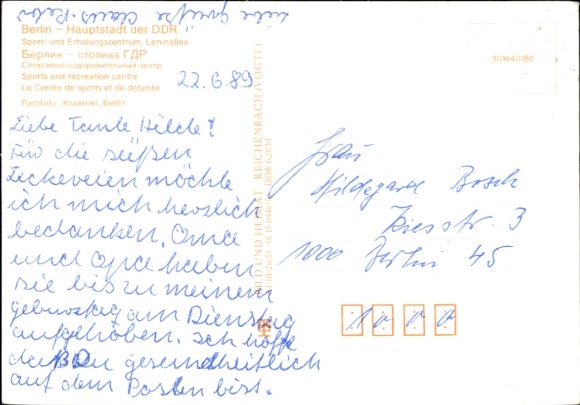 Liebe Grüße Claus-Peter
Berlin – Hauptstadt der DDR
Sport- und Erholungszentrum, Leninallee
Берлин — столица ГДР
Спортивно-оздоровительный центр
Sports and recreation centre
Le Centre de sports et de détente
Farbfoto: Kraemer, Berlin
22.6.89
Liebe Tante Hilde!
Für die süßen
Leckereien möchte
ich mich herzlich
bedanken. Oma
und Opa haben
sie bis zu meinem
geburstag am Dienstag
aufgehoben. Ich hoffe
daß Du gesundheitlich
auf dem Posten bist.
BILD UND HEIMAT REICHENBACH (VOGTL)
30M40/86
Frau
Hildegard Bosch
Kiesstr. 3
1000 Berlin 45
1000